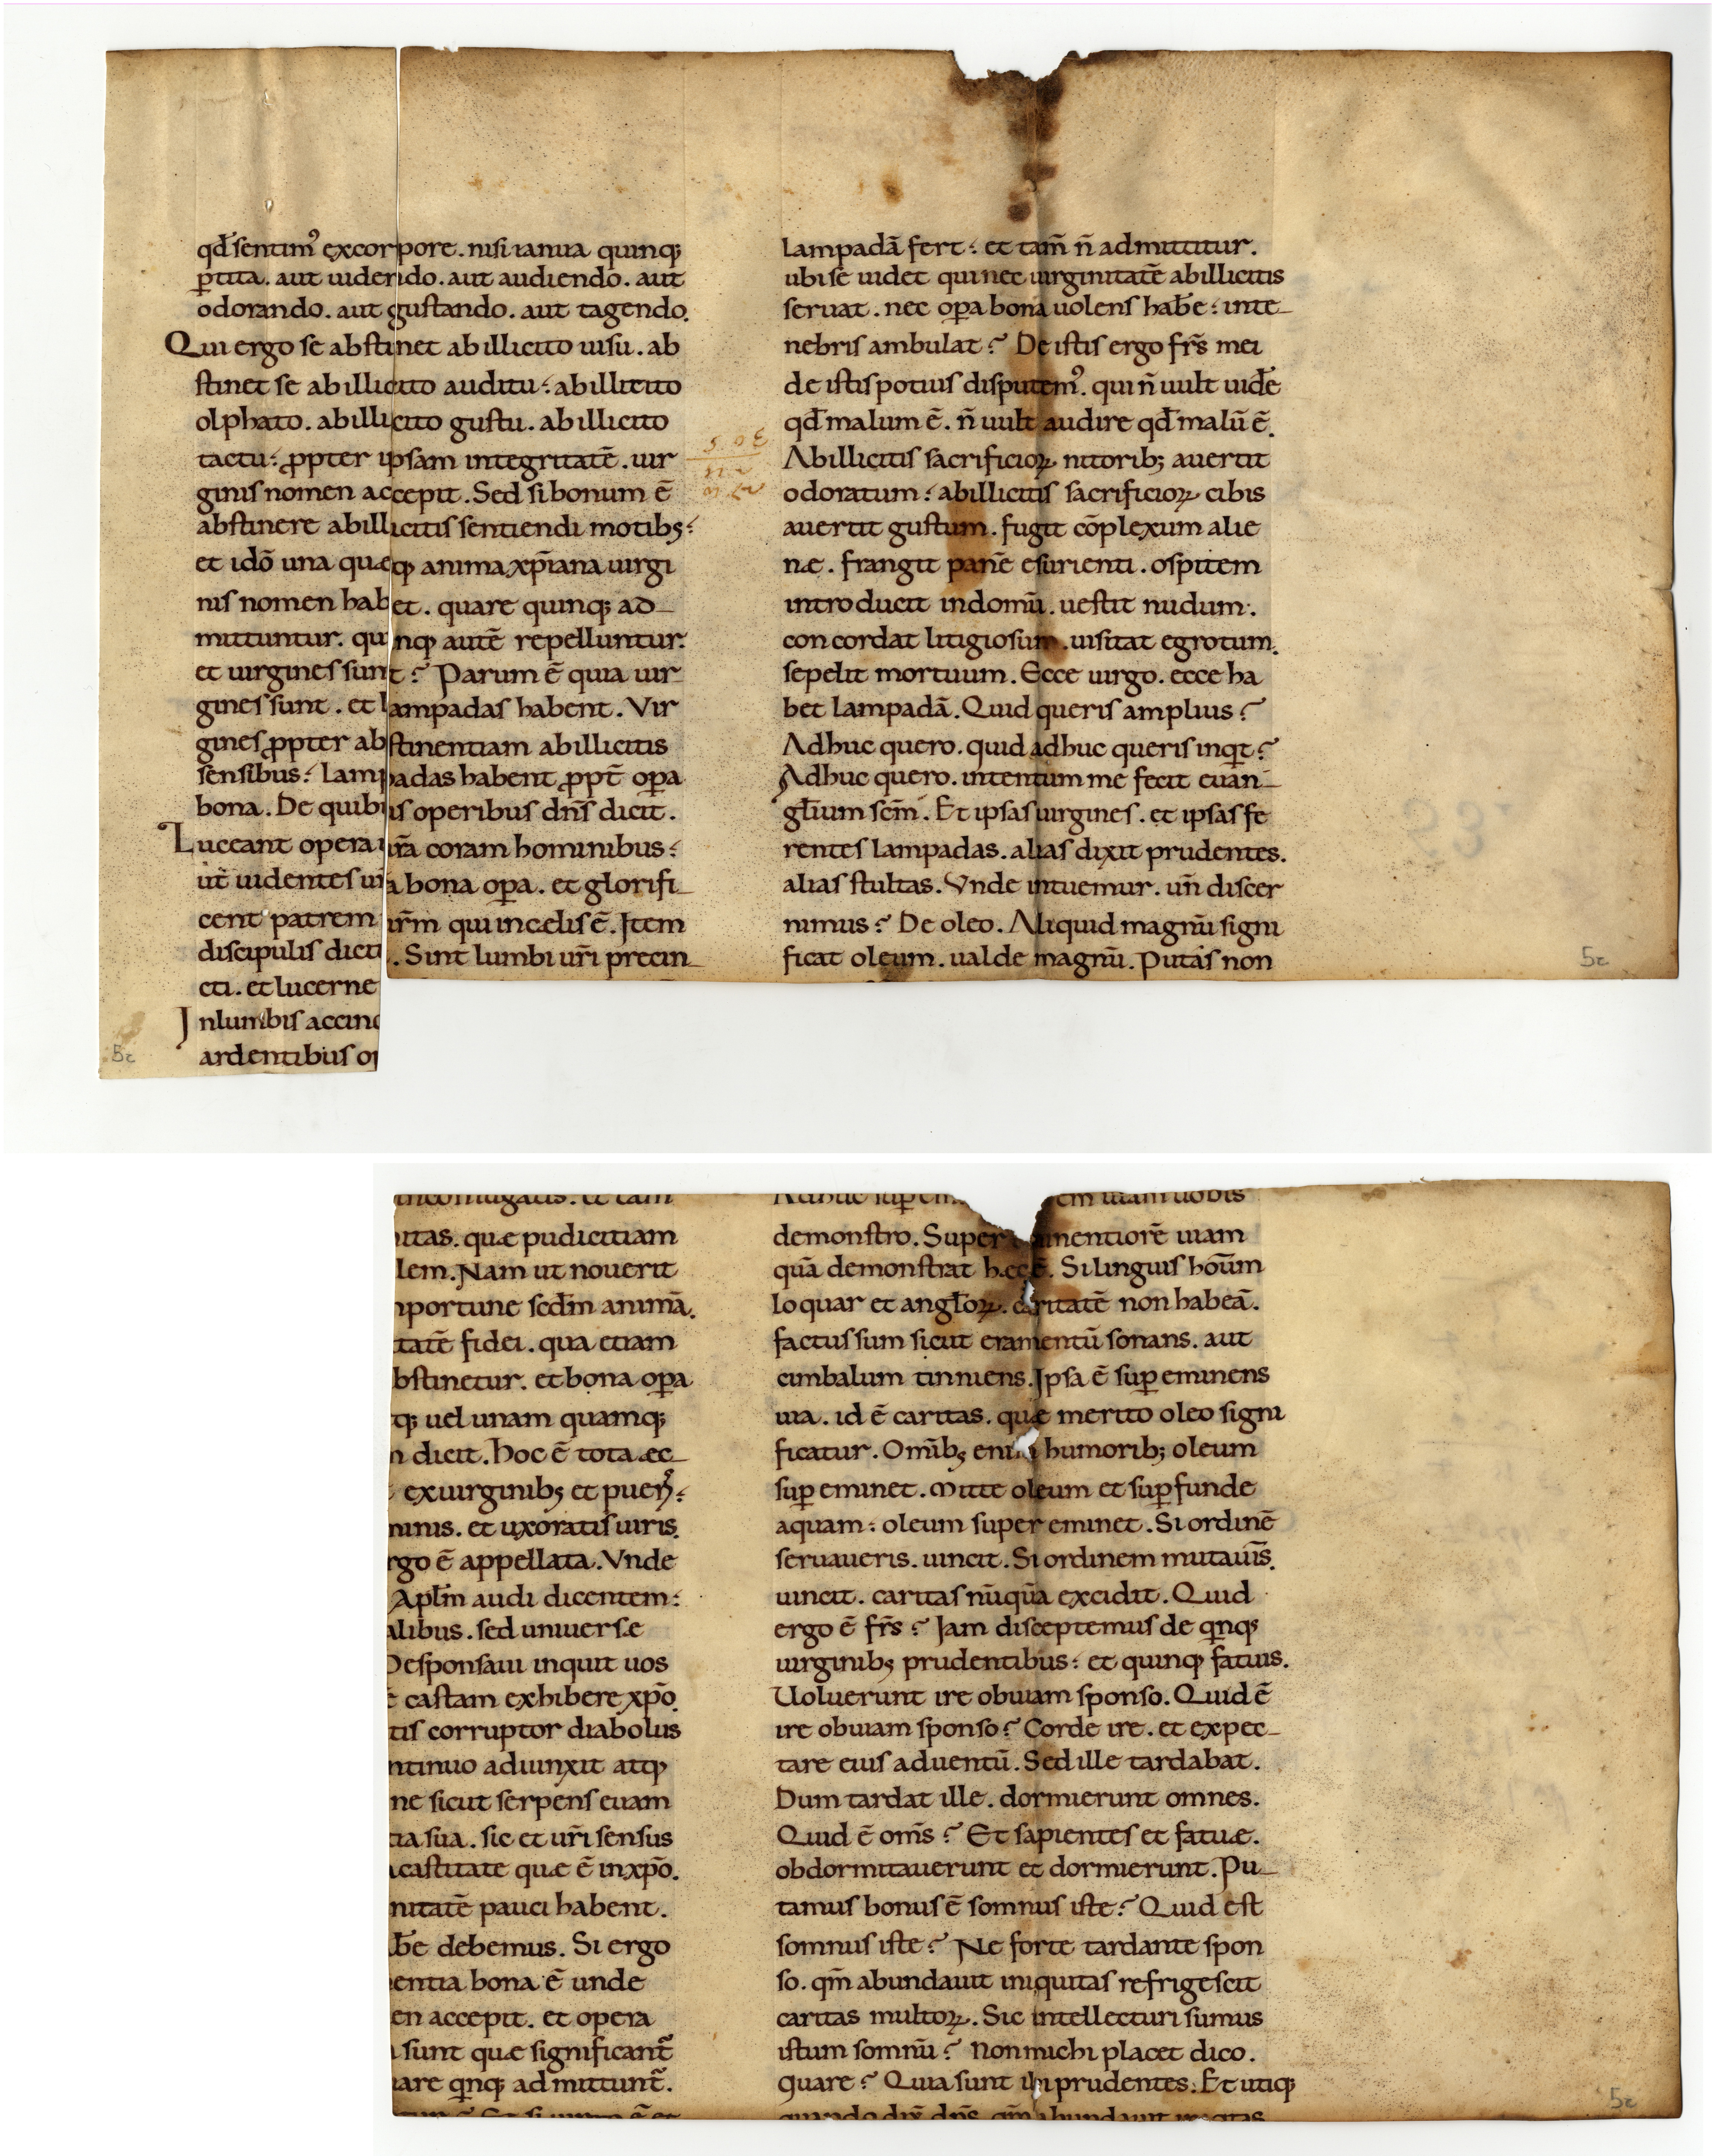 qđ sentim᾽ excorpore. nisi ianua quinq;
ꝑtita. aut uidendo. aut audiendo. aut
odorando. aut gustando. aut tagendo.
Qui ergo se abstinet ab illicito uisu. ab
stinet se ab illicito auditu. ab illicito
olphato. ab illicito gustu. ab illicito
tactu. ꝓpter ipsam integritatē. uir
ginis nomen accepit. Sed si bonum ē
abstinere abillicitis sentiendi motib;
et idō una quæq; anima xp̄iana uirgi
nis nomen habet. quare quinq; ad
mittuntur. quinq; autē repelluntur.
et uirgines sunt? Parum ē quia uir
gines sunt. et lampadas habent. Vir
gines ꝓpter abstinentiam abillicitis
sensibus. Lampadas habent ꝓpt̄ oꝑa
bona. De quibus operibus dn̄s dicit.
Luceant opera ur̄a coram hominibus.
ut̄ uidentes ur̄a bona oꝑa. et glorifi
cent patrem ur̄m qui in cælis ē. Item
discipulis dicit. Sint lumbi ur̄i precin
cti. et lucerne
In lumbis accinc
ardentibus op
lampadā fert. et tam̄ n̄ admittitur.
ubi se uidet qui nec uirginitatē abillicitis
seruat. nec oꝑa bona uolens hab̄e. inte
nebris ambulat? De istis ergo fr̄s mei
de istis potius disputem᾽. qui n̄ uult uid̄e
qđ malum ē. n̄ uult audire qđ malū ē.
Abillicitis sacrificioꝝ nitorib; auertit
odoratum. abillicitis sacrificioꝝ cibis
auertit gustum. fugit cōplexum alie
næ. frangit panē esurienti. ospitem
introducit indomū. uestit nudum.
concordat litigiosum. uisitat egrotum.
sepelit mortuum. Ecce uirgo. ecce ha
bet lampadā. Quid queris amplius?
Adhuc quero. quid adhuc queris inqt?
Adhuc quero. intentum me fecit euan
gl̄ium sc̄m. Et ipsas uirgines. et ipsas fe
rentes lampadas. alias dixit prudentes.
alias stultas. Vnde intuemur. un̄ discer
nimus? De oleo. Aliquid magnū signi
ficat oleum. ualde magnū. Putas non
5c
5c
inconiugatis. et tam
nitas. quæ pudicitiam
lem. Nam ut nouerit
nportune sc̄dm animā.
tatē fidei. qua etiam
bstinetur. et bona oꝑa
tq; uel unam quamq;
n dicit. hoc ē tota æc
ex uirginib; et puer᾽.
minis. et uxoratis uiris.
rgo ē appellata. Vnde
Apl̄m audi dicentem.
alibus. sed uniuersæ
Desponsaui inquit uos
ē castam exhibere xp̄o.
tis corruptor diabolus
ntinuo adiunxit atq;
ne sicut serpens euam
tia sua. sic et ur̄i sensus
castitate quæ ē in xp̄o.
nitatē pauci habent.
ab̄e debemus. Si ergo
entia bona ē unde
en accepit. et opera
sunt quæ significant̄
uare qnq; admittunt̄.
Adhuc suꝑem em uiam uobis
demonstro. Super minentiorē uiam
quā demonstrat hæc ē. Si linguis hoūm
loquar et angl̄oꝝ. caritatē non habeā.
factus sum sicut eramentū sonans. aut
cimbalum tinniens. Ipsa ē suꝑeminens
uia. id ē caritas. quæ merito oleo signi
ficatur. Omīb; enim humorib; oleum
suꝑeminet. Mitte oleum et suꝑfunde
aquam. oleum supereminet. Si ordinē
seruaueris. uincit. Si ordinem mutauīs.
uincit. caritas nūquā excidit. Quid
ergo ē fr̄s? Iam disceptemus de qnq;
uirginib; prudentibus. et quinq; fatuis.
Uoluerunt ire obuiam sponso. Quid ē
ire obuiam sponso? Corde ire. et expec
tare eius aduentū. Sed ille tardabat.
Dum tardat ille. dormierunt omnes.
Quid ē om̄s? Et sapientes et fatuæ.
obdormitauerunt et dormierunt. Pu
tamus bonus ē somnus iste? Quid est
somnus iste? Ne forte tardante spon
so. qm̄ abundauit iniquitas refrigescit
caritas multoꝝ. Sic intellecturi sumus
istum somnū? Non michi placet dico.
quare? Quia sunt ibi prudentes. Et utiq;
quando dix̄ dn̄s. qm̄ abundauit
5c